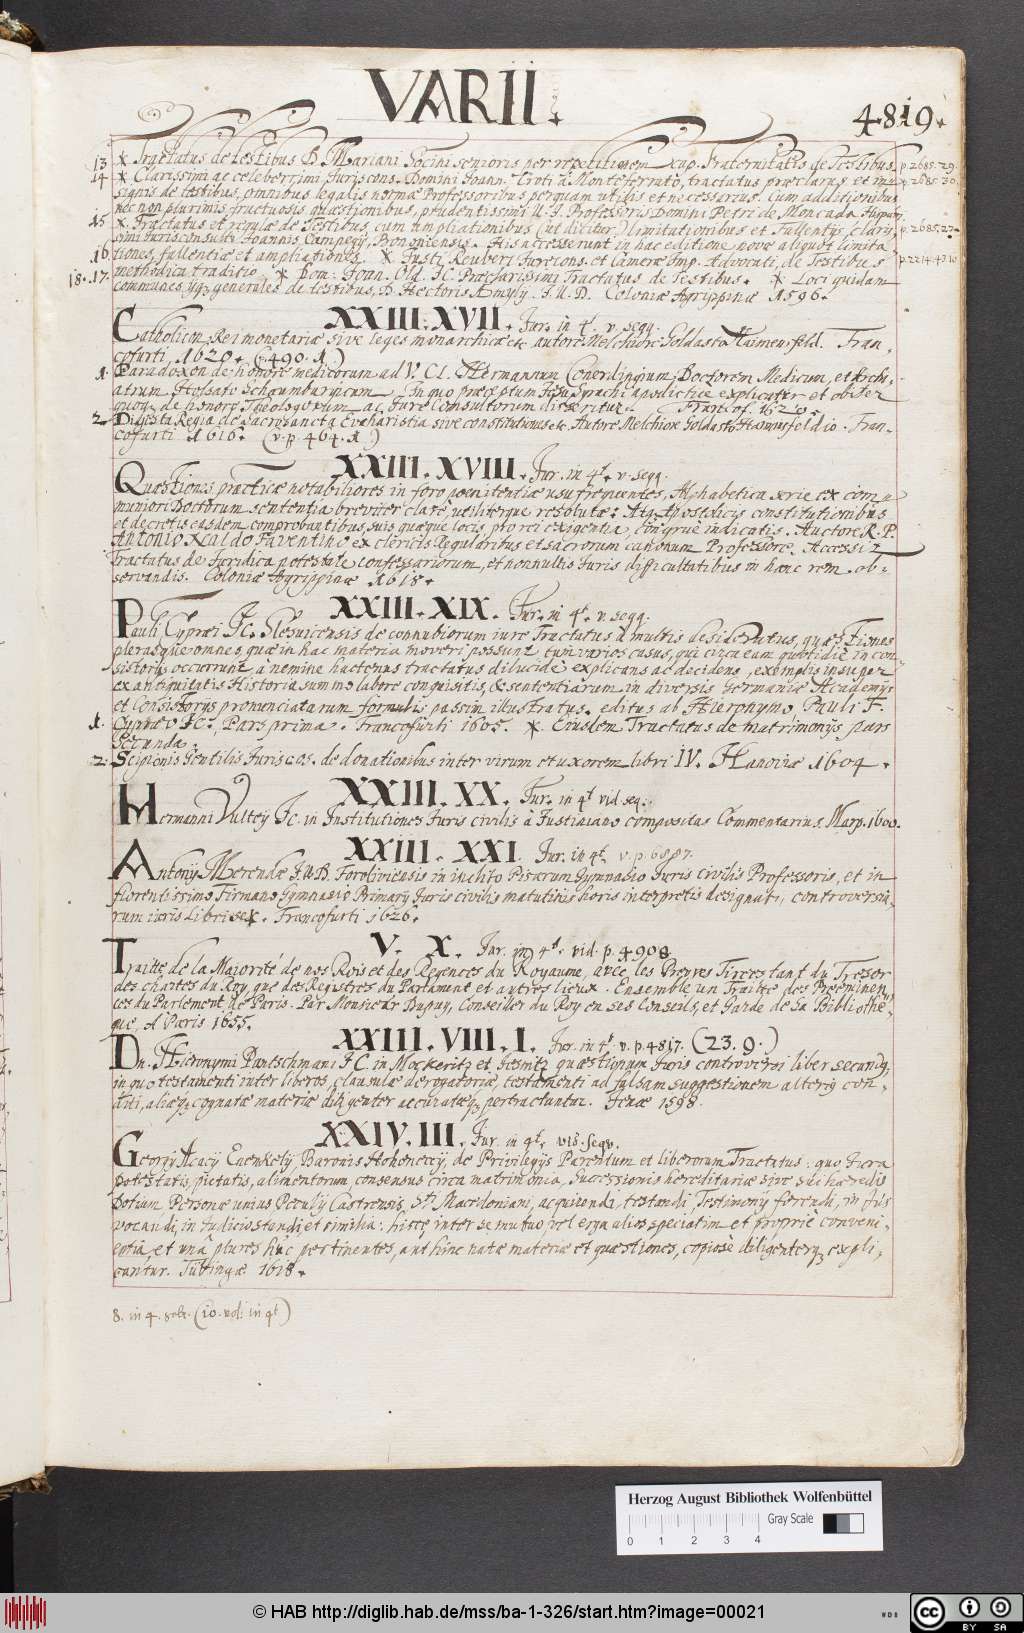 VARII.
4819.
13 * Tractatus de testibus D. Mariani Socini senioris per repetitionem Xup. Fraternitatis de Testibus. p.2685.29.
14 * Clarissimi ac celeberrimi Juriscons. Domini Joann. Croti à Monteferrato, tractatus præclarus et in- p.2685.30.
signis de testibus, omnibus legalis normæ Professoribus perquam utilis et necessarius. Cum additionibus
nec non plurimis fructuosis quæstionibus, prudentissimi U. J. Professoris Domini Petri de Moncada Hispan.
15 * Tractatus et regulæ de Testibus cum ampliationibus (ut dicitur) limitationibus et Fallentijs, claris- p.2685.27.
simi Jurisconsulti Joannis Campegij, Bononiensis. His accesserunt in hac editione novæ aliquot limita
16 tiones, fallentiæ et ampliationes. * Justi Reuberi Jurecons. et Cameræ Imp. Advocati, de Testibus p.2214.43.10
18. 17. methodica traditio * Dom. Joan. Old. JC. Præclarissimi Tractatus de Testibus. * Loci quidam
communes, ijq3 generales de testibus, D. Hectoris Æmylij J.U.D. Coloniæ Agrippinæ 1596.
XXIII. XVII. Jur. in 4t. v. seqq.
Catholicon Rei monetariæ sive leges monarchicæ etc autore Melchiore Goldasto Haimensfeld. Fran-
cofurti, 1620. (490. 1.)
1. Paradoxon de honore medicorum ad V. Cl. Hermannum Conerdingium, Doctorem Medicum, et Archi-
atrum Hossato Schaumburgicum. In quo præceptum Jesu Syrachi apodictice explicatur et obiter
quoq3 de honore Theologorum ac Jure Consultorum disseritur. Francof. 1620.
2. Digesta Regia de Sacrosancta Eucharistia sive constitutiones etc. Autore Melchior Goldasto Haimensfeldio. Fran-
cofurti 1616. (v. p. 464. 1.)
XXIII. XVIII. Jur. in 4t. v. seqq.
Quæstiones practicæ notabiliores in foro poenitentiæ usu frequentes, Alphabetica serie ex com-
muniori Doctorum sententia breviter clarè, utiliterque resolutæ: Atq3 Apostolicis constitutionibus
et decretis easdem comprobantibus, suis quæque locis, pro rei exigentia, congruè indicatis. Auctore R. P.
Antonio Naldo Faventino ex clericis Regularibus et sacrorum canonum Professore. Accessit
Tractatus de Juridica potestate confessariorum, et nonnullis Juris difficultatibus in hanc rem ob-
servandis. Coloniæ Agrippinæ 1618.
XXIII. XIX. Jur. in 4t. v. seqq.
Pauli Cypræi JC. Slesuicensis de connubiorum iure Tractatus à multis desideratus, quæstiones
plerasque omnes, quæ in hac materia moveri possunt tum varios casus, qui circa eam quotidiè in con-
sistorijs occurrunt, à nemine hactenus tractatus dilucidè explicans ac decidens, exemplis insuper
ex antiquitatis Historia summo labore conquisitis, & sententiarum in diversis Germaniæ Academijs
et Consistorijs pronunciatarum formulis passim illustratus. editus ab Hieronymo Pauli F.
1. Cypræo JC. Pars prima. Francofurti 1605. * Eiusdem Tractatus de matrimonijs pars
Secunda.
2. Scipionis Gentilis Jurisco. de donationibus inter virum et uxorem libri IV. Hanoviæ 1604.
XXIII. XX. Jur. in 4t vid seq.
Hermanni Vulteij Jc. in Institutiones Juris civilis à Justiniano compositas Commentarius. Marp. 1600.
XXIII. XXI. Jur. in 4t. v. p. 6887.
Antonij Merendæ J.U.D. Foroliviensis in inclito Pisarum Gymnasio Juris civilis Professoris, et in
florentissimo Firmano Gymnasio Primarij Juris civilis matutinis horis interpretis designati, controversia-
rum iuris Libri sex. Francofurti 1626.
V. X. Jur. in 4t. vid. p. 4908.
Traitté de la Majorité de nos Rois et des Regences du Royaume, avec les Preuves Tirées tant du Tresor
des chartes du Roy, que des Registres du Parlament et autres lieux. Ensemble un Traitté des Preeminen-
ces du Parlement de Paris. Par Monsieur Dupuy, Conseiller du Roy en ses Conseils, et Garde de Sa Bibliothe-
que. A Paris 1655.
XXIII. VIII. 1. Jur. in 4t. v. p. 4817. (23. 9.)
Dn. Hieronymi Pantschmani JC. in Mockeritz et Gesnitz quæstionum Juris controversi liber secundq.
in quo testamenti inter liberos, clausulæ derogatoriæ, testamenti ad falsam suggestionem alterius con-
diti, aliæq3 cognatæ materiæ diligenter accuratæq3 pertractantur. Jenæ 1598.
XXIV. III. Jur. in 4t. vid. seqv.
Georgij Acacij Enenkelij Baronis Hoheneccij, de Privilegijs Parentum et liberorum Tractatus: quo Jura
potestatis, pietatis, alimentorum, consensus circa matrimonia, Successionis hereditariæ sive sui hæredis
Dotium, Personæ unius Peculij Castrensis, SC. Macedoniani, acquirendi, testandi, Testimonij ferendi, in jus
vocandi, in Judicio standi, et similia: hisce inter se mutuo vel erga alios speciatim et propriè conveni-
entia, et unâ plures huc pertinentes, aut hinc natæ materiæ et quæstiones, copiosè diligenterq3 expli-
cantur. Tubingæ 1618.
8. in 4. (10. vol. in 4t)
Herzog August Bibliothek Wolfenbüttel
Gray Scale
0 1 2 3 4
© HAB http://diglib.hab.de/mss/ba-1-326/start.htm?image=00021
WDB
cc BY SA